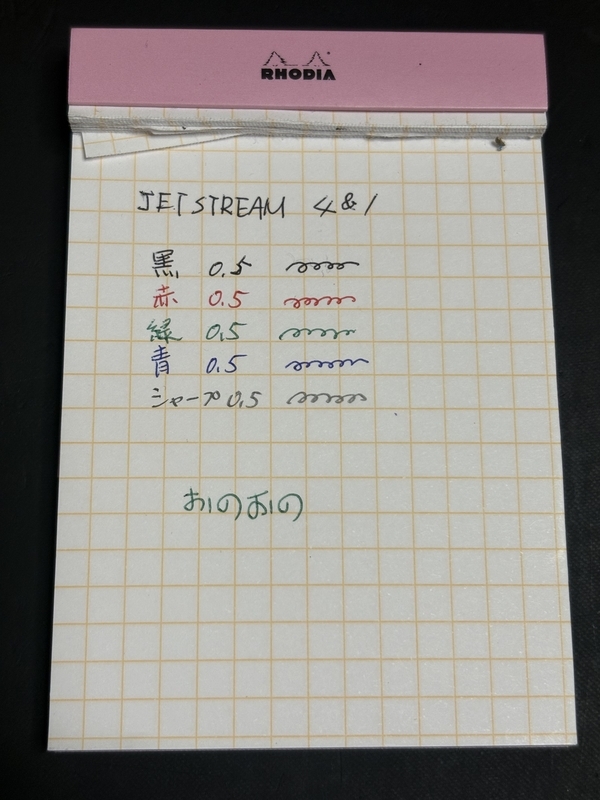 RHODIA
JETSTREAM 4&1
黒 0.5
赤 0.5
緑 0.5
青 0.5
シャープ 0.5
おいのおいの